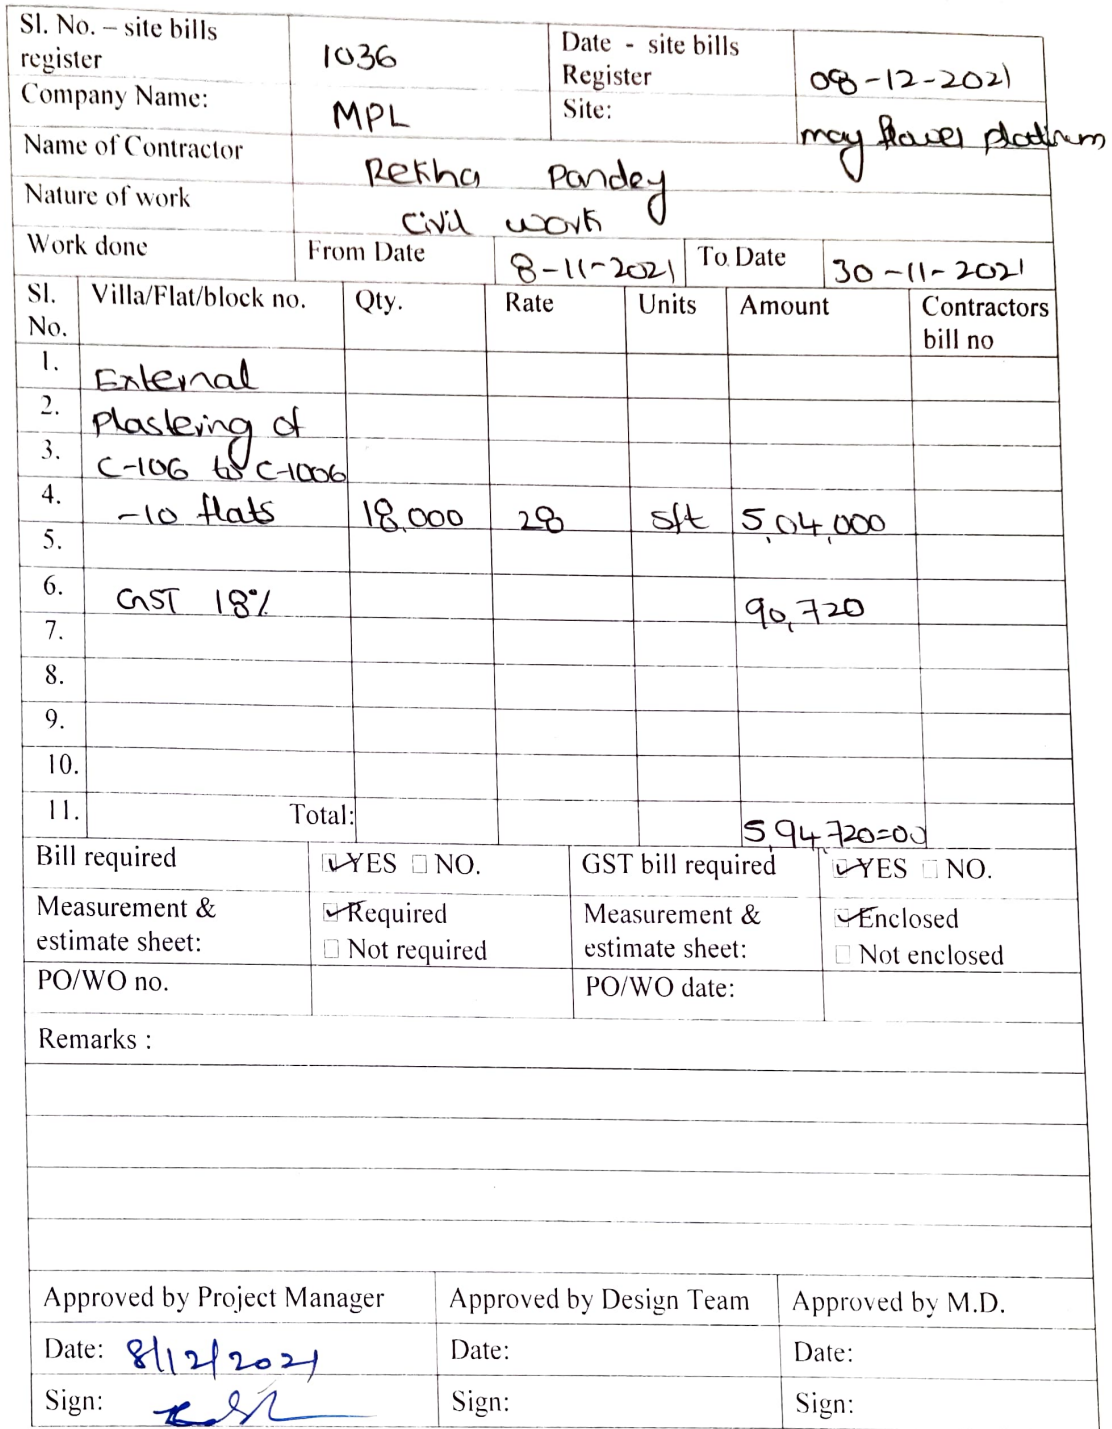 Sl. No. – site bills register 1036 Date - site bills Register 08-12-2021
Company Name: MPL Site: may flower platinum
Name of Contractor Rekha Pandey
Nature of work Civil work
Work done From Date 8-11-2021 To Date 30-11-2021
Sl. No. Villa/Flat/block no. Qty. Rate Units Amount Contractors bill no
1. External
2. Plastering of
3. C-106 to C-1006
4. -10 flats 18,000 28 sft 5,04,000
5.
6. GST 18% 90,720
7.
8.
9.
10.
11. Total: 5,94,720=00
Bill required YES NO. GST bill required YES NO.
Measurement & estimate sheet: Required Not required Measurement & estimate sheet: Enclosed Not enclosed
PO/WO no. PO/WO date:
Remarks :
Approved by Project Manager Approved by Design Team Approved by M.D.
Date: 8/12/2021 Date: Date:
Sign: Sign: Sign: